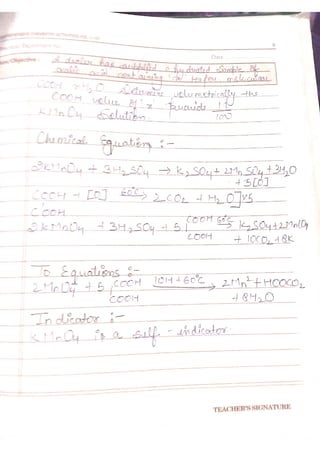 Date
Objective A dealer has supplied a hydrated sample of
oxalic acid containing 'x' water molecules
COOH xH2O. Determine volumetrically the
COOH value of 'x' provided
KMnO4 solution.
Chemical Equation :-
2KMnO4 + 3H2SO4 → K2SO4 + 2MnSO4 + 3H2O
+ 5[O]
COOH + [O] 60°C → 2CO2 + H2O]x5
COOH
2KMnO4 + 3H2SO4 + 5 COOH 60°C → K2SO4 + 2MnSO4
COOH + 10CO2 + 8H
To Equations :-
2MnO4 + 5 COOH 10H + 60°C → 2Mn2 + HCOCO2
COOH + 8H2O
Indicator :-
KMnO4 is a self-indicator
TEACHER'S SIGNATURE